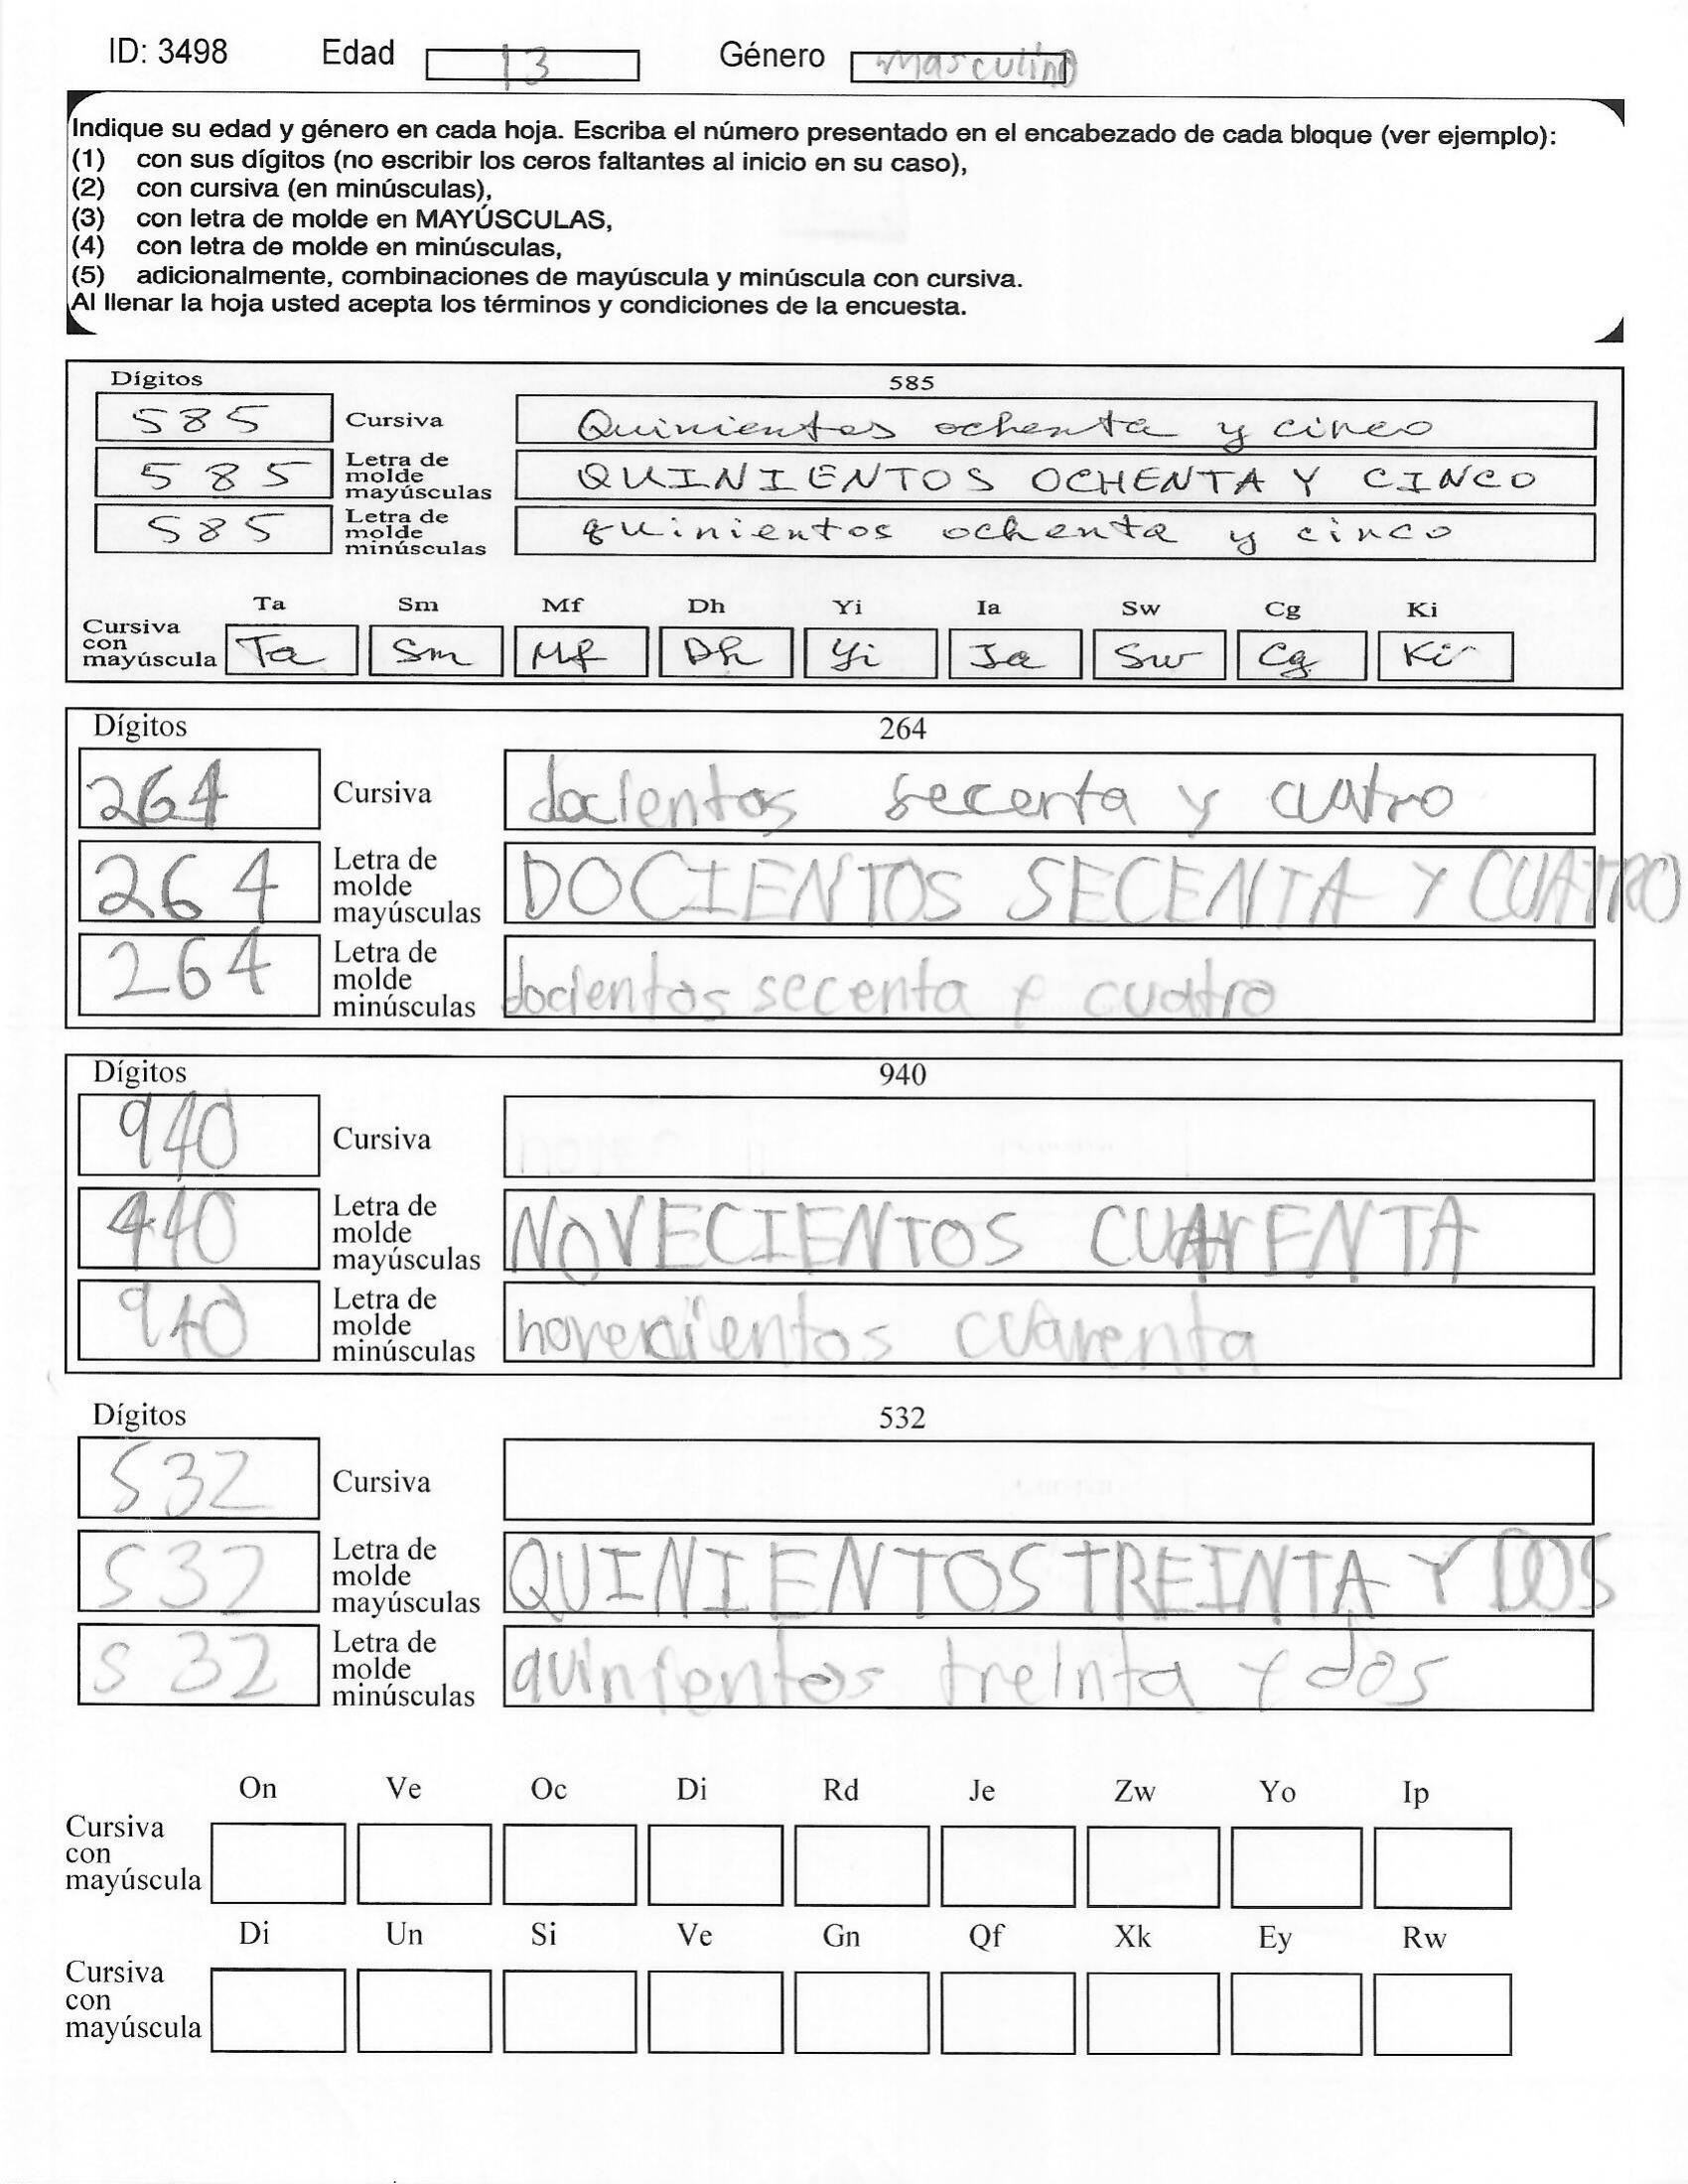 ID: 3498 Edad 13 Género masculino
Indique su edad y género en cada hoja. Escriba el número presentado en el encabezado de cada bloque (ver ejemplo):
(1) con sus dígitos (no escribir los ceros faltantes al inicio en su caso),
(2) con cursiva (en minúsculas),
(3) con letra de molde en MAYÚSCULAS,
(4) con letra de molde en minúsculas,
(5) adicionalmente, combinaciones de mayúscula y minúscula con cursiva.
Al llenar la hoja usted acepta los términos y condiciones de la encuesta.
Dígitos 585
585 Cursiva Quinientos ochenta y cinco
585 Letra de molde mayúsculas QUINIENTOS OCHENTA Y CINCO
585 Letra de molde minúsculas quinientos ochenta y cinco
Ta Sm Mf Dh Yi Ia Sw Cg Ki
Cursiva con mayúscula Ta Sm Mf Dh Yi Ia Sw Cg Ki
Dígitos 264
264 Cursiva docientos secenta y cuatro
264 Letra de molde mayúsculas DOCIENTOS SECENTA Y CUATRO
264 Letra de molde minúsculas docientos secenta y cuatro
Dígitos 940
940 Cursiva
940 Letra de molde mayúsculas NOVECIENTOS CUARENTA
940 Letra de molde minúsculas novecientos cuarenta
Dígitos 532
532 Cursiva
532 Letra de molde mayúsculas QUINIENTOS TREINTA Y DOS
532 Letra de molde minúsculas quinientos treinta y dos
On Ve Oc Di Rd Je Zw Yo Ip
Cursiva con mayúscula
Di Un Si Ve Gn Qf Xk Ey Rw
Cursiva con mayúscula